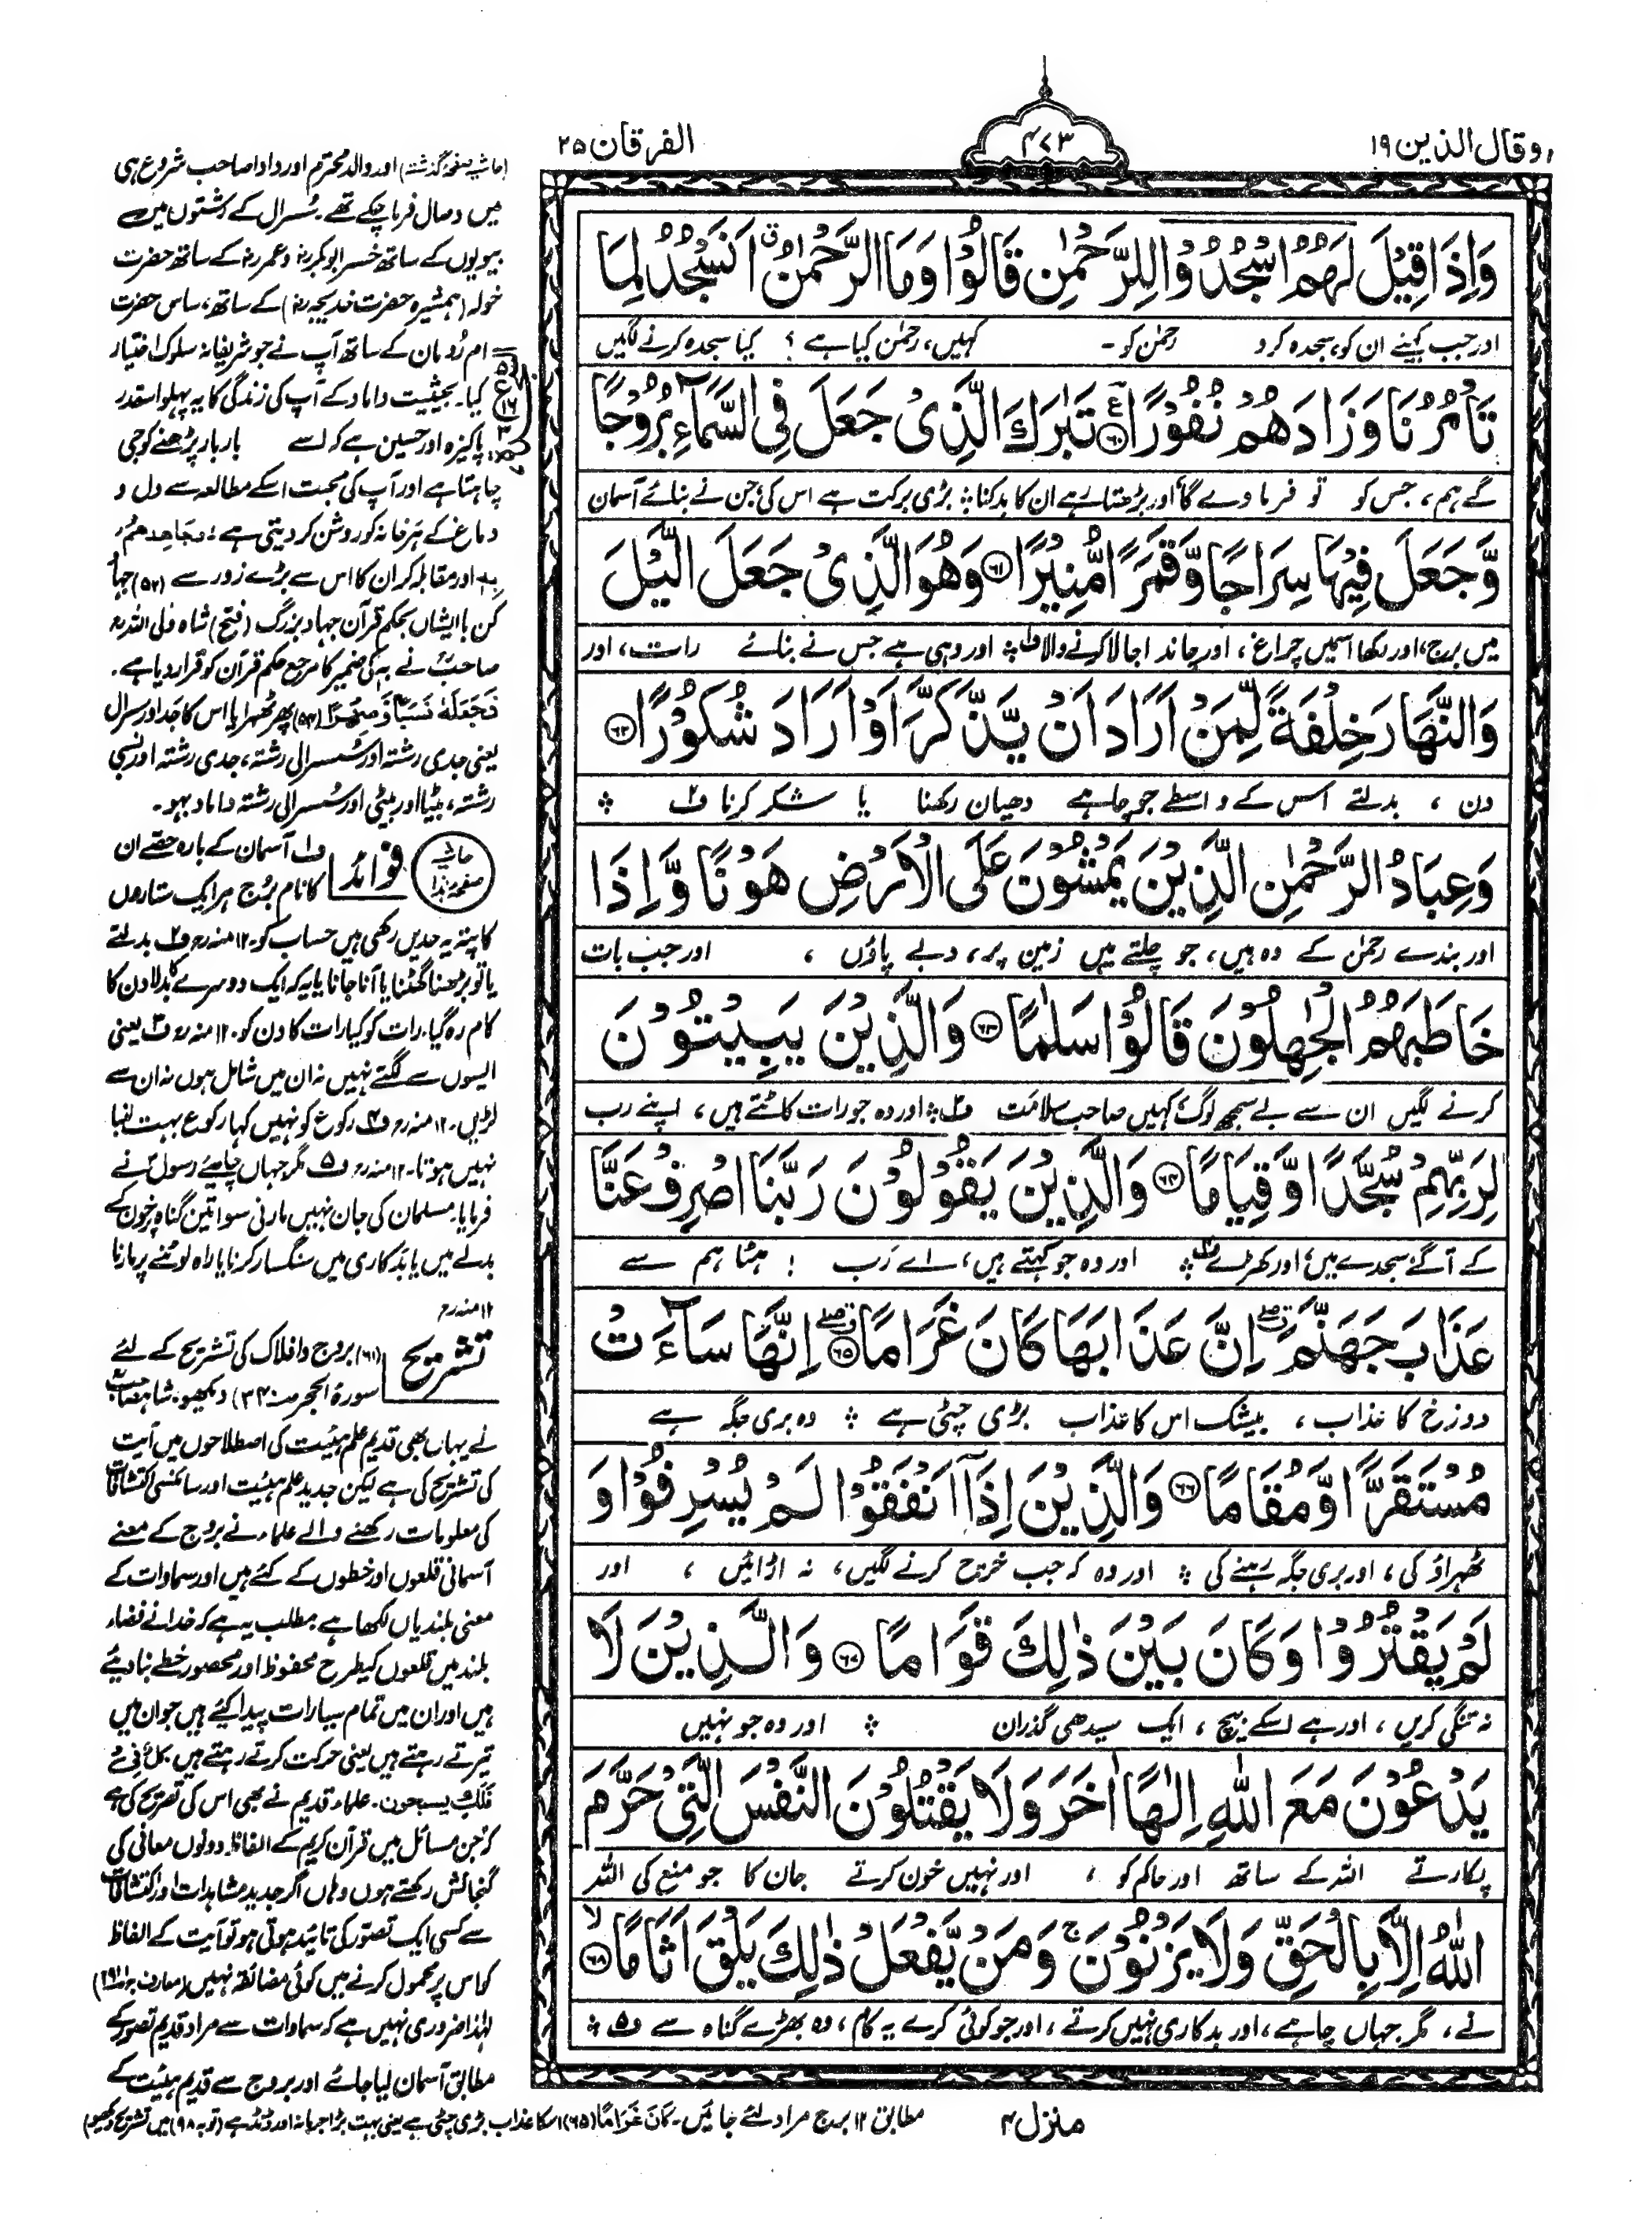 وقال الذين ۱۹
۴۷۳
الفرقان ۲۵
وَاِذَا قِيْلَ لَهُمُ اسْجُدُوْا لِلرَّحْمٰنِ قَالُوْا وَمَا الرَّحْمٰنُ اَنَسْجُدُ لِمَا
اور جب کہئے ان کو، سجدہ کرو رحمٰن کو۔ کہیں، رحمٰن کیا ہے ؟ کیا سجدہ کرنے لگیں
تَاْمُرُنَا وَزَادَهُمْ نُفُوْرًا ۶۰ تَبٰرَكَ الَّذِىْ جَعَلَ فِى السَّمَآءِ بُرُوْجًا
گے ہم، جس کو تو فرما دے گا، اور بڑھتا ہے ان کا بدکنا ؞ بڑی برکت ہے اس کی، جن نے بنائے آسمان
وَّجَعَلَ فِيْهَا سِرَاجًا وَّقَمَرًا مُّنِيْرًا ۶۱ وَهُوَ الَّذِىْ جَعَلَ الَّيْلَ
میں برج، اور رکھا اسمیں چراغ، اور چاند اجالا کرنے والا ف۱ ؞ اور وہی ہے جس نے بنائے رات، اور
وَالنَّهَارَ خِلْفَةً لِّمَنْ اَرَادَ اَنْ يَّذَّكَّرَ اَوْ اَرَادَ شُكُوْرًا ۶۲
دن ، بدلتے اس کے واسطے جو چاہے دھیان رکھنا یا شکر کرنا ف۲ ؞
وَعِبَادُ الرَّحْمٰنِ الَّذِيْنَ يَمْشُوْنَ عَلَى الْاَرْضِ هَوْنًا وَّاِذَا
اور بندے رحمٰن کے وہ ہیں، جو چلتے ہیں زمین پر، دبے پاؤں ، اور جب بات
خَاطَبَهُمُ الْجٰهِلُوْنَ قَالُوْا سَلٰمًا ۶۳ وَالَّذِيْنَ يَبِيْتُوْنَ
کرنے لگیں ان سے بے سمجھ لوگ، کہیں صاحب سلامت ف۳ ؞ اور وہ جو رات کاٹتے ہیں، اپنے رب
لِرَبِّهِمْ سُجَّدًا وَّقِيَامًا ۶۴ وَالَّذِيْنَ يَقُوْلُوْنَ رَبَّنَا اصْرِفْ عَنَّا
کے آگے سجدے میں، اور کھڑے ف۴ ؞ اور وہ جو کہتے ہیں، اے رب ! ہٹا ہم سے
عَذَابَ جَهَنَّمَ اِنَّ عَذَابَهَا كَانَ غَرَامًا ۶۵ اِنَّهَا سَآءَتْ
دوزخ کا عذاب، بیشک اس کا عذاب بڑی چٹی ہے ؞ وہ بری جگہ ہے
مُسْتَقَرًّا وَّمُقَامًا ۶۶ وَالَّذِيْنَ اِذَآ اَنْفَقُوْا لَمْ يُسْرِفُوْا وَ
ٹھہراؤ کی، اور بری جگہ رہنے کی ؞ اور وہ کہ جب خرچ کرنے لگیں، نہ اڑائیں ، اور
لَمْ يَقْتُرُوْا وَكَانَ بَيْنَ ذٰلِكَ قَوَامًا ۶۷ وَالَّذِيْنَ لَا
نہ تنگی کریں، اور ہے اسکے بیچ، ایک سیدھی گذران ؞ اور وہ جو نہیں
يَدْعُوْنَ مَعَ اللّٰهِ اِلٰهًا اٰخَرَ وَلَا يَقْتُلُوْنَ النَّفْسَ الَّتِىْ حَرَّمَ
پکارتے اللہ کے ساتھ اور حاکم کو ، اور نہیں خون کرتے جان کا جو منع کی اللہ
اللّٰهُ اِلَّا بِالْحَقِّ وَلَا يَزْنُوْنَ وَمَنْ يَّفْعَلْ ذٰلِكَ يَلْقَ اَثَامًا ۶۸
نے، مگر جہاں چاہے، اور بدکاری نہیں کرتے، اور جو کوئی کرے یہ کام، وہ بھڑے گناہ سے ف۵ ؞
(حاشیہ صفحہ گذشتہ) اور والد محترم اور دادا صاحب شروع ہی
میں وصال فرما چکے تھے۔ سُسرال کے رشتوں میں
بیویوں کے ساتھ خسر ابوبکرؓ و عمرؓ کے ساتھ حضرت
خولہ (ہمشیرہ حضرت خدیجہؓ) کے ساتھ، ساس حضرت
ام رُومان کے ساتھ آپ نے جو شریفانہ سلوک اختیار
کیا۔ بحیثیت داماد کے آپ کی زندگی کا یہ پہلو اسقدر
پاکیزہ اور حسین ہے کہ اسے بار بار پڑھنے کو جی
چاہتا ہے اور آپ کی محبت اسکے مطالعہ سے دل و
دماغ کے ہر خانہ کو روشن کر دیتی ہے؛ وجاھدھم
بہٖ اور مقابلہ کر ان کا اس سے بڑے زور سے (۵۲) جہاد
کن با ایشاں بحکم قرآن جہاد بزرگ (فتح) شاہ ولی اللہؒ
صاحبؒ نے بہٖ کی ضمیر کا مرجع حکم قرآن کو قرار دیا ہے۔
فَجَعَلَهٗ نَسَبًا وَّصِهْرًا (۵۴) پھر ٹھہرایا اس کا جد اور سسرال
یعنی جدی رشتہ اور سُسرالی رشتہ، جدی رشتہ اور نسبی
رشتہ، بیٹیا اور بیٹی اور سُسرالی رشتہ داماد و بہو۔
حاشیہ صفحہ ہذا
فوائد
ف۱ آسمان کے بارہ حصّے ان
کا نام بُرج ہر ایک ستاروں
کا پتہ یہ حدیں رکھی ہیں حساب کو۔ ۱۲ منہ رہ ف۲ بدلتے
یا تو بڑھنا گھٹنا یا آنا جانا یا یہ کہ ایک دوسرے کا بدلا دن کا
کام رہ گیا، رات کو کیا رات کا دن کو۔ ۱۲ منہ رہ ف۳ یعنی
ایسوں سے لگتے نہیں نہ ان میں شامل ہوں نہ ان سے
لڑیں۔ ۱۲ منہ رہ ف۴ رکوع کو نہیں کہا رکوع بہت لنبا
نہیں ہوتا۔ ۱۲ منہ رہ ف۵ مگر جہاں چاہئے رسولؐ نے
فرمایا۔ مسلمان کی جان نہیں مارنی سوا تین گناہ پر، خون کے
بدلے میں یا بدکاری میں سنگسار کرنا یا راہ لوٹنے پر مارنا
۱۲ منہ رہ
تشریح
(۶۱) بروج و افلاک کی تشریح کے لئے
سورۃ الحجر ص۳۴۰ دیکھو۔ شاہ صاحب
نے یہاں بھی قدیم علم ہیئت کی اصطلاحوں میں آیت
کی تشریح کی ہے لیکن جدید علم ہیئت اور سائنسی اکتشافات
کی معلومات رکھنے والے علماء نے بروج کے معنے
آسمانی قلعوں اور خطوں کے کئے ہیں اور سماوات کے
معنی بلندیاں لکھا ہے، مطلب یہ ہے کہ خدا نے فضاء
بلند میں قلعوں کیطرح محفوظ اور محصور خطے بنا دیئے
ہیں اور ان میں تمام سیارات پیدا کیئے ہیں جو ان میں
تیرتے رہتے ہیں یعنی حرکت کرتے رہتے ہیں، کُلٌّ فِیْ
فَلَکٍ یسبحون۔ علماء قدیم نے بھی اس کی تصریح کی ہے
کہ جن مسائل میں قرآن کریم کے الفاظ دونوں معانی کی
گنجائش رکھتے ہوں وہاں اگر جدید مشاہدات اور اکتشافات
سے کسی ایک تصوّر کی تائید ہوتی ہو تو آیت کے الفاظ
کو اس پر محمول کرنے میں کوئی مضائقہ نہیں (معارف
لہٰذا ضروری نہیں ہے کہ سماوات سے مراد قدیم تصور کے
مطابق آسمان لیا جائے اور بروج سے قدیم ہیئت کے
مطابق ۱۲ برج مراد لئے جائیں۔ کَانَ غَرَامًا (۶۵) اسکا عذاب بڑی چٹی ہے یعنی بہت بڑا جرمانہ اور ڈنڈ ہے (توبہ ۹۸) میں تشریح دیکھو)
منزل ۴